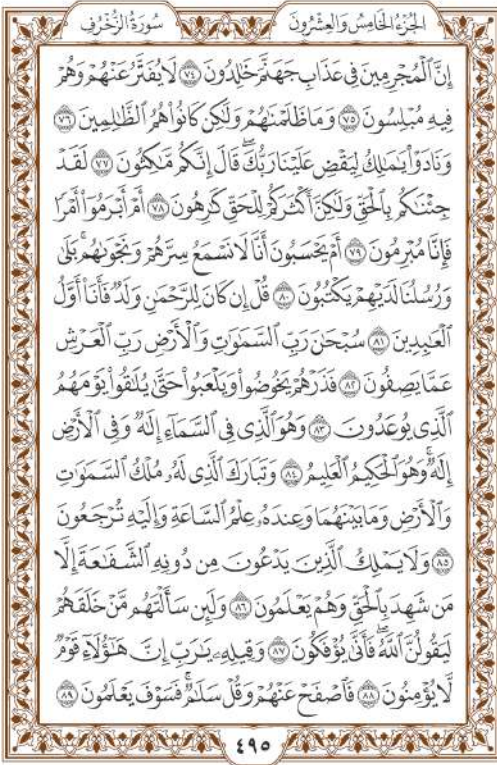 الجُزْءُ الخَامِسُ وَالعِشْرُونَ سُورَةُ الزُّخْرُفِ
إِنَّ ٱلْمُجْرِمِينَ فِى عَذَابِ جَهَنَّمَ خَٰلِدُونَ ٧٤ لَا يُفَتَّرُ عَنْهُمْ وَهُمْ
فِيهِ مُبْلِسُونَ ٧٥ وَمَا ظَلَمْنَٰهُمْ وَلَٰكِن كَانُوا۟ هُمُ ٱلظَّٰلِمِينَ ٧٦
وَنَادَوْا۟ يَٰمَٰلِكُ لِيَقْضِ عَلَيْنَا رَبُّكَ ۖ قَالَ إِنَّكُم مَّٰكِثُونَ ٧٧ لَقَدْ
جِئْنَٰكُم بِٱلْحَقِّ وَلَٰكِنَّ أَكْثَرَكُمْ لِلْحَقِّ كَٰرِهُونَ ٧٨ أَمْ أَبْرَمُوٓا۟ أَمْرًا
فَإِنَّا مُبْرِمُونَ ٧٩ أَمْ يَحْسَبُونَ أَنَّا لَا نَسْمَعُ سِرَّهُمْ وَنَجْوَىٰهُم ۚ بَلَىٰ
وَرُسُلُنَا لَدَيْهِمْ يَكْتُبُونَ ٨٠ قُلْ إِن كَانَ لِلرَّحْمَٰنِ وَلَدٌ فَأَنَا۠ أَوَّلُ
ٱلْعَٰبِدِينَ ٨١ سُبْحَٰنَ رَبِّ ٱلسَّمَٰوَٰتِ وَٱلْأَرْضِ رَبِّ ٱلْعَرْشِ
عَمَّا يَصِفُونَ ٨٢ فَذَرْهُمْ يَخُوضُوا۟ وَيَلْعَبُوا۟ حَتَّىٰ يُلَٰقُوا۟ يَوْمَهُمُ
ٱلَّذِى يُوعَدُونَ ٨٣ وَهُوَ ٱلَّذِى فِى ٱلسَّمَآءِ إِلَٰهٌ وَفِى ٱلْأَرْضِ
إِلَٰهٌ ۚ وَهُوَ ٱلْحَكِيمُ ٱلْعَلِيمُ ٨٤ وَتَبَارَكَ ٱلَّذِى لَهُۥ مُلْكُ ٱلسَّمَٰوَٰتِ
وَٱلْأَرْضِ وَمَا بَيْنَهُمَا وَعِندَهُۥ عِلْمُ ٱلسَّاعَةِ وَإِلَيْهِ تُرْجَعُونَ
٨٥ وَلَا يَمْلِكُ ٱلَّذِينَ يَدْعُونَ مِن دُونِهِ ٱلشَّفَٰعَةَ إِلَّا
مَن شَهِدَ بِٱلْحَقِّ وَهُمْ يَعْلَمُونَ ٨٦ وَلَئِن سَأَلْتَهُم مَّنْ خَلَقَهُمْ
لَيَقُولُنَّ ٱللَّهُ ۖ فَأَنَّىٰ يُؤْفَكُونَ ٨٧ وَقِيلِهِۦ يَٰرَبِّ إِنَّ هَٰٓؤُلَآءِ قَوْمٌ
لَّا يُؤْمِنُونَ ٨٨ فَٱصْفَحْ عَنْهُمْ وَقُلْ سَلَٰمٌ ۚ فَسَوْفَ يَعْلَمُونَ ٨٩
٤٩٥